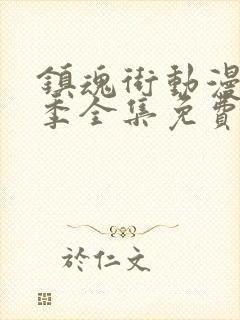 鎮魂街動漫
季全集免費
於仁文